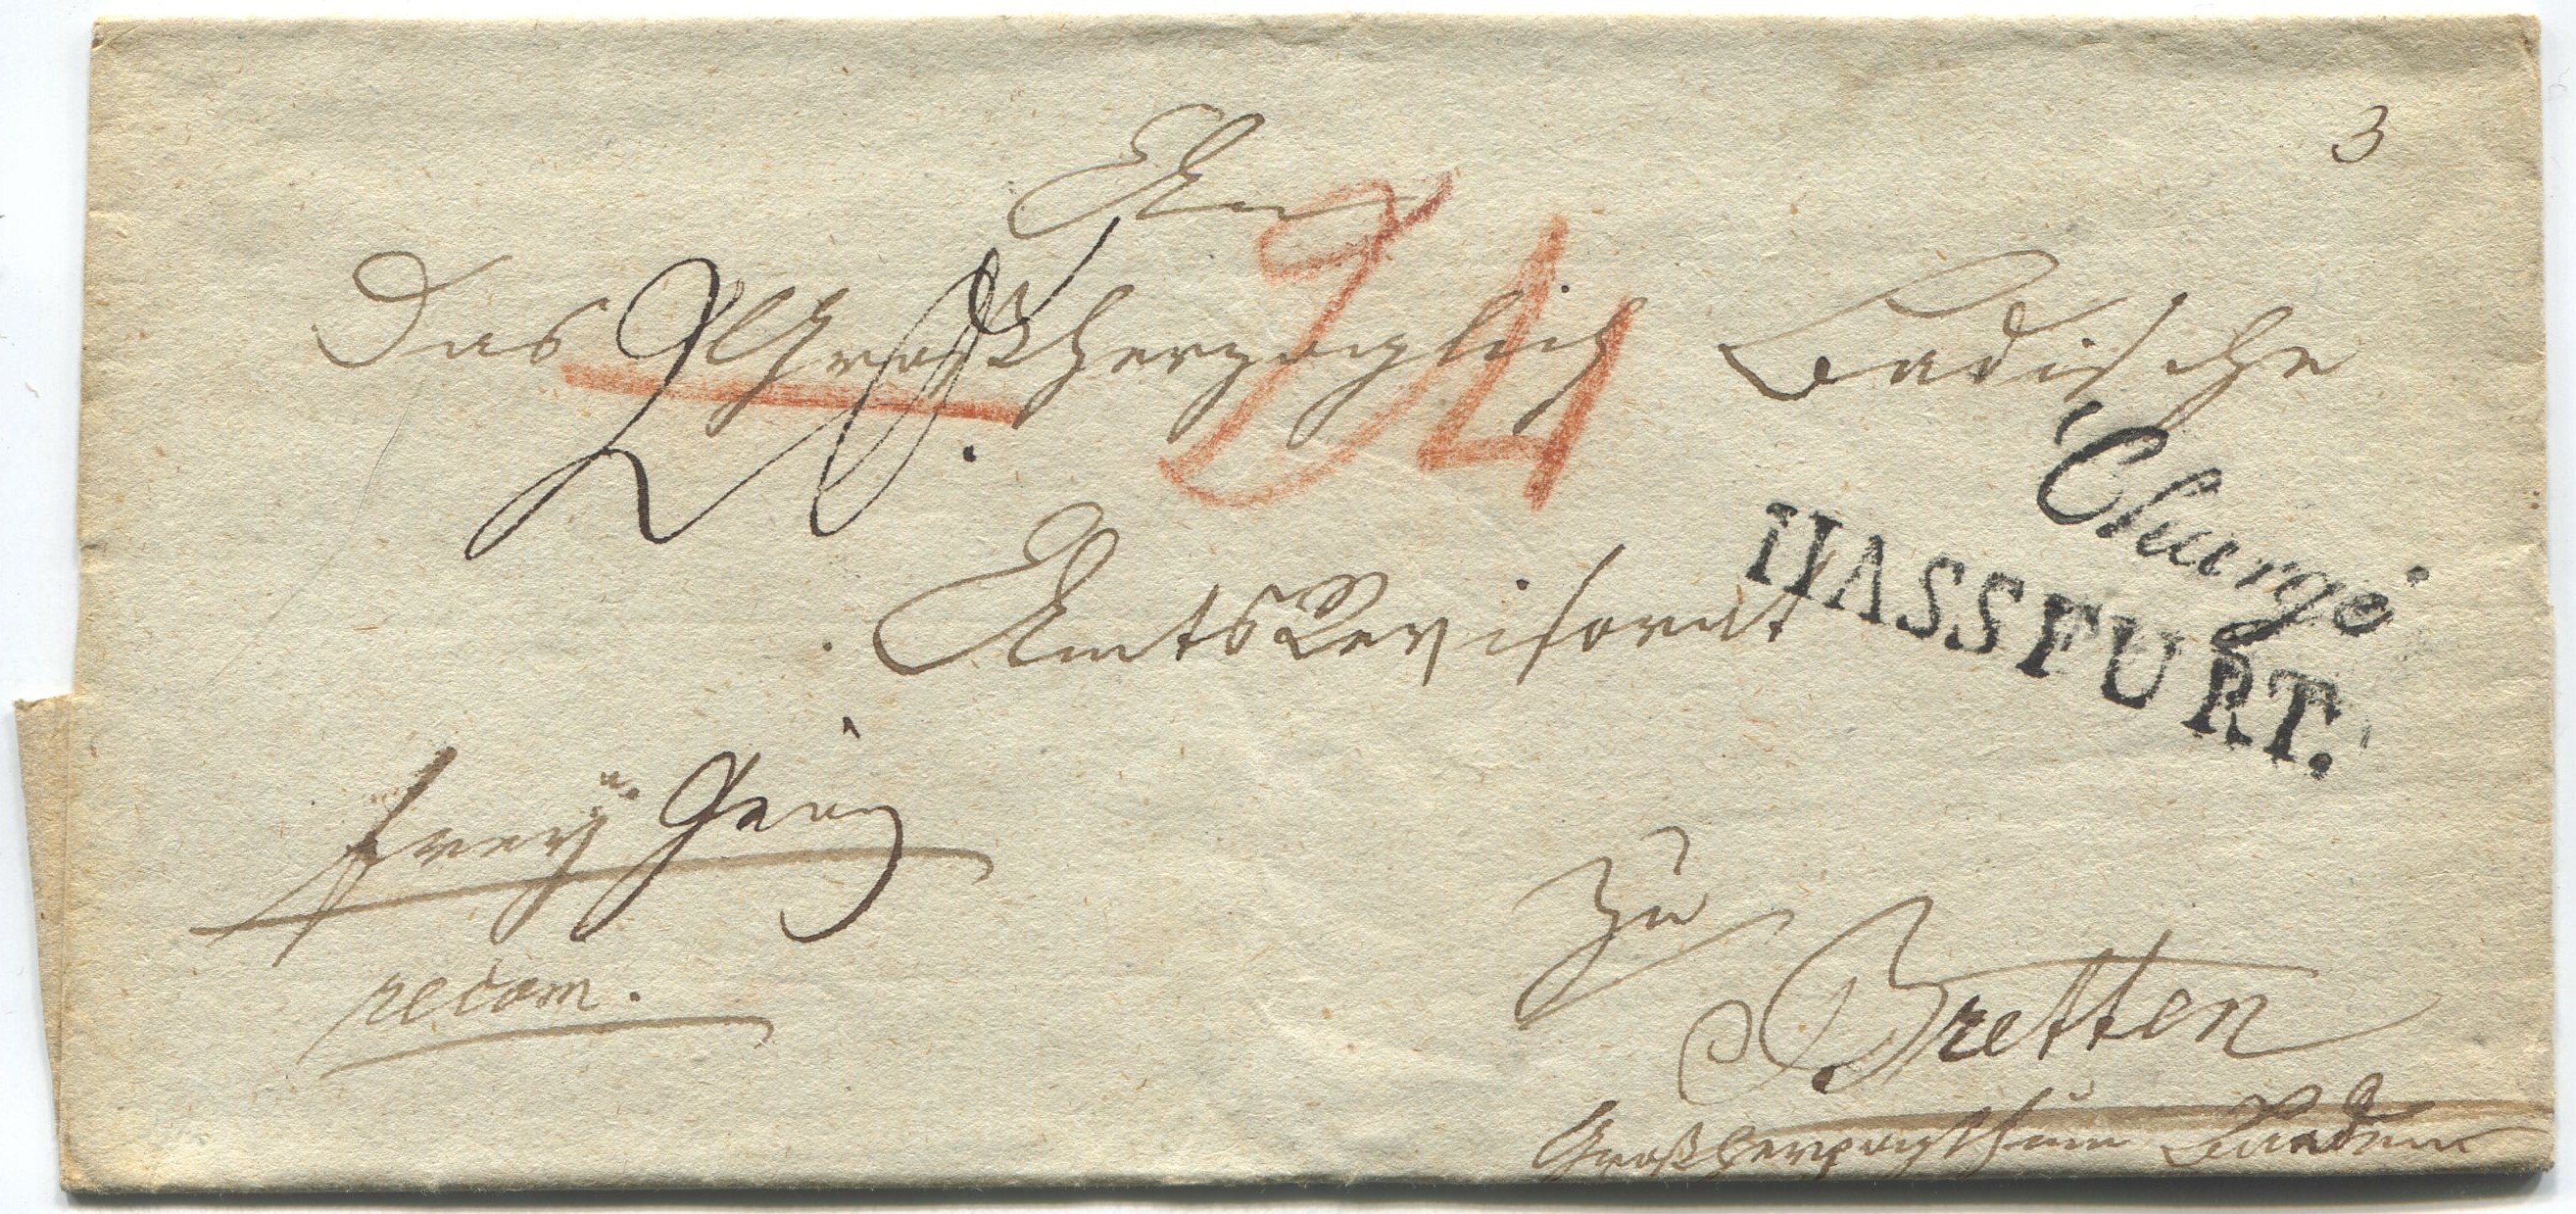 3
An
Das Großherzoglich Badische
14
Chargé
HASSFURT.
AmtsRevisorat
frey
recom.
zu
Bretten
Großherzogthum Baden